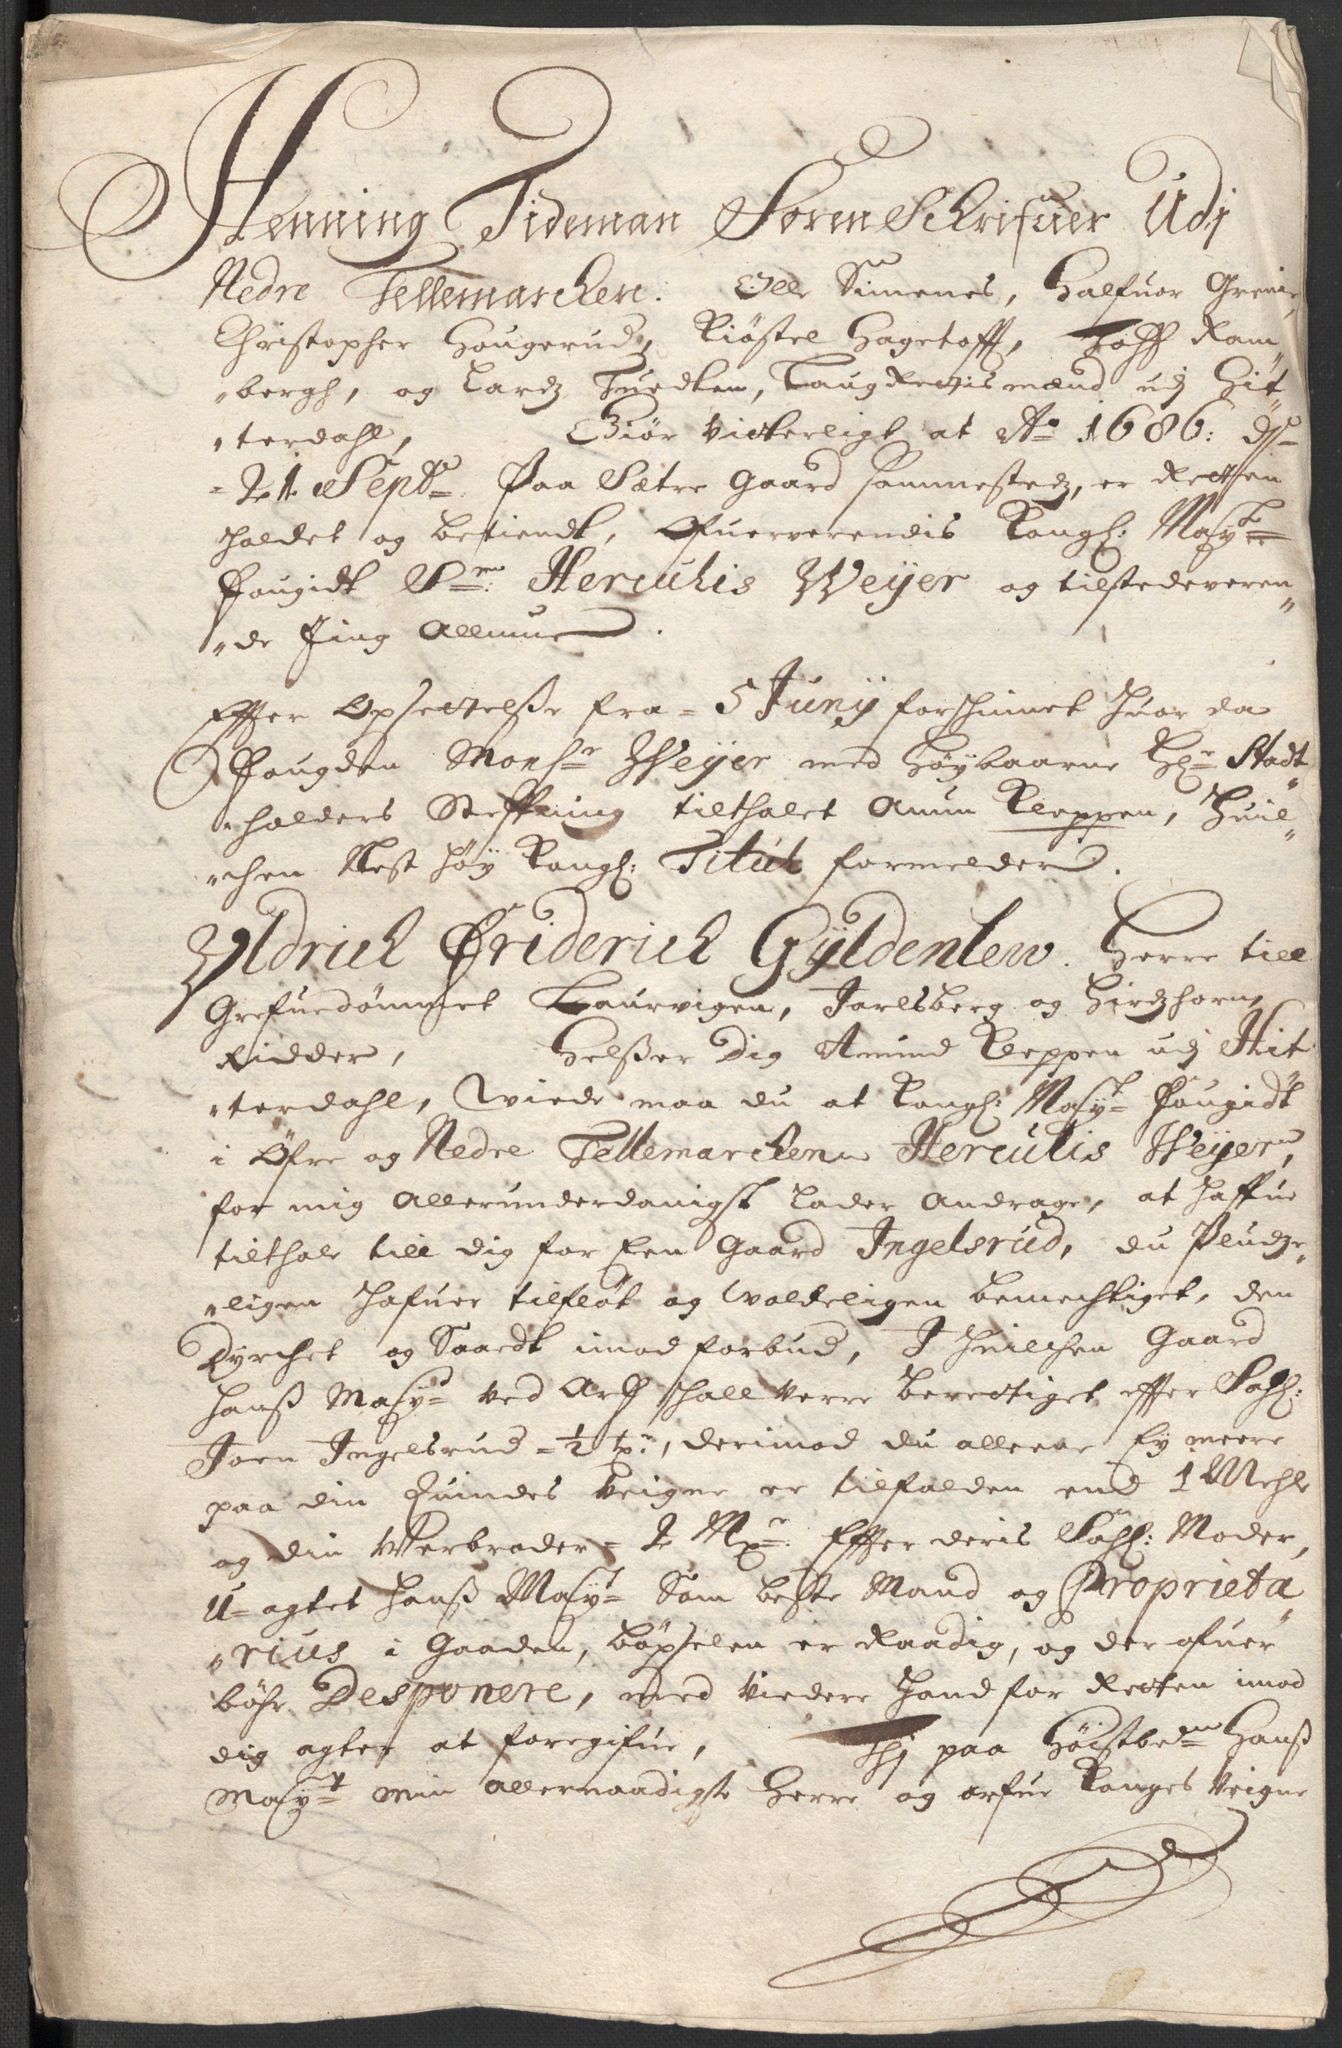 Henning Tideman Sorenschrifuer Udj
Nedre Tellemarchen. Olle Simenes, Halfuor Grenie,
Christopher Hougerud, Kiöstel Hagetofft, Toff Ram„
„bergh, og Lardz Tuedten, Laug Rettis mænd udj Hit„
„terdahl, Giör Vitterligt at Ao 1686: d
21 Septb. Paa Sætre Gaard sammestedz, er Retten
holdet og betiendt, Ofuerverendis Kongl: Maytz
Fougidt Sr. Herculis Weyer og tilstedeveren„
„de Ting Allmue.
Effter Opsettelße fra 5 Junij forschinnet huor da
Fougden Monsr Weyer med Höybaarne Hr Stadt„
„holders Steffning tilthalet Amun Kleppen, Huil„
„chen Nest höy Kongl: Titul formelder.
Uldrich Friderich Gyldenlew. Herre till
Grefuedömmet Laurvigen, Jarlsberg og Hirdzhorn,
Ridder, Helßer Dig Amund Kleppen udj Hit
„terdahl, Wiede maa du at Kongl: Maytz Fougidt
i Öfre og Nedre Tellemarchen Herculis Weyer,
for mig Allerunderdanigst lader Andrage, at haffue
tilthale till dig for Een Gaard Ingelsrud, du Pludze„
„ligen hafuer tilfløt og Woldeligen bemechtiget, den
Dyrchet og Saaedt imod forbud, I huilchen Gaard
Hanß Mayt ved Arf schall Verre berettiget effter Sahl:
Joen Ingelsrud ½ tr, derimod du alleene Ey meere
paa din Quindes Veigne er tilfalden end 1 Mehle
og din Werbroder 2 Mr. Effter deris Sahl: Moder,
U agtet Hanß Mayt Som beste Mand og Proprieta
„rius i Gaaden, böxselen er Raadig, og der ofuer
böhr Desponere, med Viedere hand for Retten imod
dig agter at foregifue, Thj paa Höistbemte Hanß
Mayts min allernaadigste Herre og arfue Konges Veigne